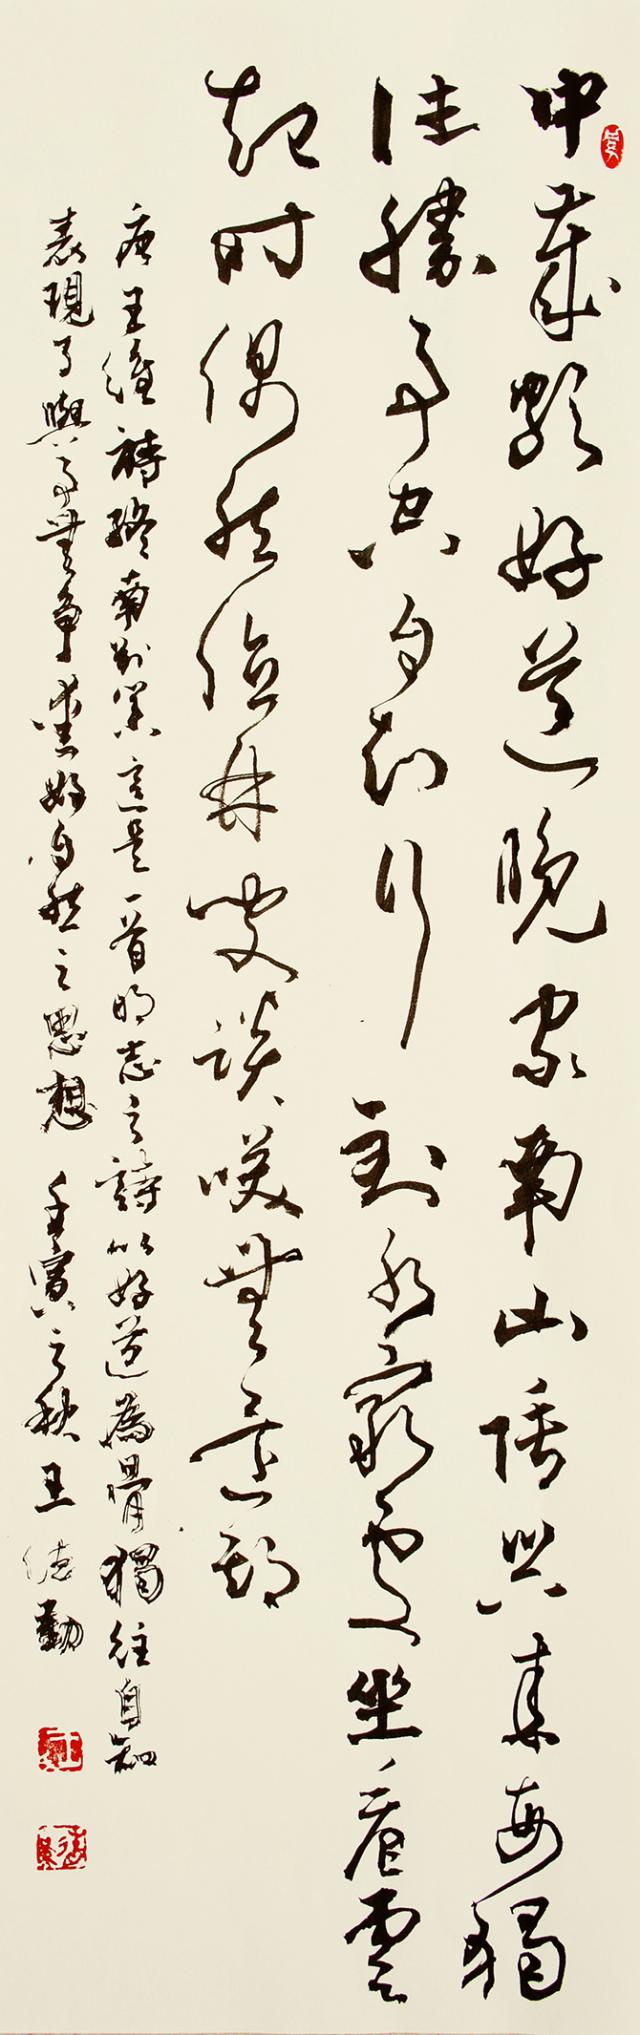 中歲頗好道晚家南山陲興來每獨
往勝事空自知行到水窮處坐看雲
起時偶然值林叟談笑無還期
唐王維詩終南別業這是一首明志之詩以好道為骨獨往自知
表現了與事無爭愛好自然之思想 壬寅之秋王德勤